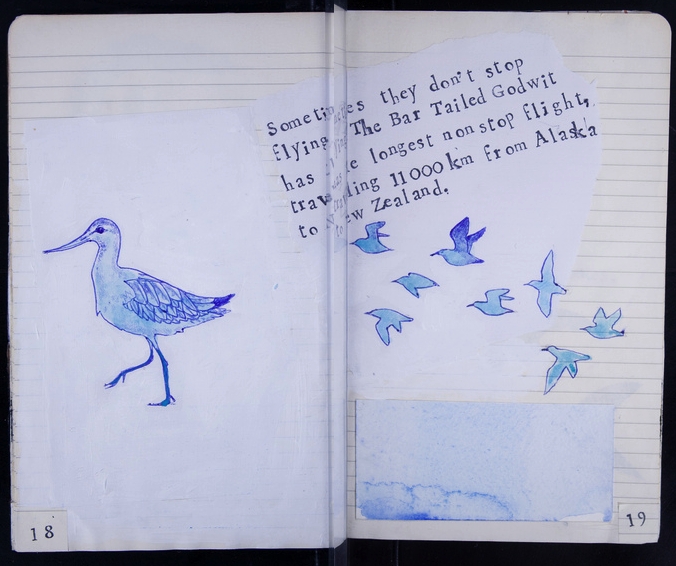 Sometimes they don't stop
flying. The Bar Tailed Godwit
has the longest nonstop flight,
travelling 11000km from Alaska
to New Zealand.
18
19